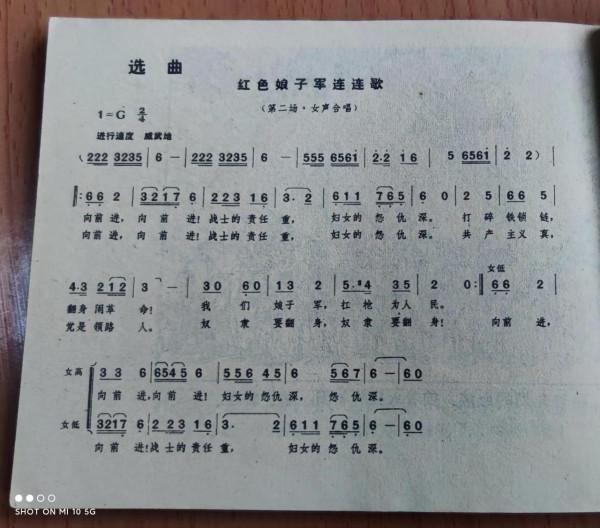 选曲
红色娘子军连连歌
(第二场·女声合唱)
1=G 2/4
进行速度 威武地
(222 3235 | 6 - | 222 3235 | 6 - | 555 6561 | 2·2 1 6 | 5 6561 | 2 2) |
‖: 6 6 2 | 3 2 1 7 6 | 2 2 3 1 6 | 3· 2 | 6 1 1 7 6 5 | 6 0 | 2 5 | 6 6 5 |
向前进, 向前进! 战士的责任重, 妇女的怨仇深。 打碎铁锁链,
向前进, 向前进! 战士的责任重, 妇女的怨仇深。 共产主义真,
女低
4·3 2 1 2 | 3 - | 3 0 6 0 | 1 3 2 | 5· 4 3 5 | 2 0 :‖ 6 6 2 |
翻身闹革命! 我们娘子军, 扛枪为人民。
党是领路人。 奴隶要翻身, 奴隶要翻身! 向前进,
女高 3 3 6 | 6 5 4 5 6 | 5 5 6 4 5 | 6 5 6 7 | 6 - | 6 0
向前进, 向前进! 妇女的怨仇深, 怨仇深。
女低 3 2 1 7 6 | 2 2 3 1 6 | 3· 2 | 6 1 1 7 6 5 | 6 - | 6 0
向前进! 战士的责任重, 妇女的怨仇深。
SHOT ON MI 10 5G